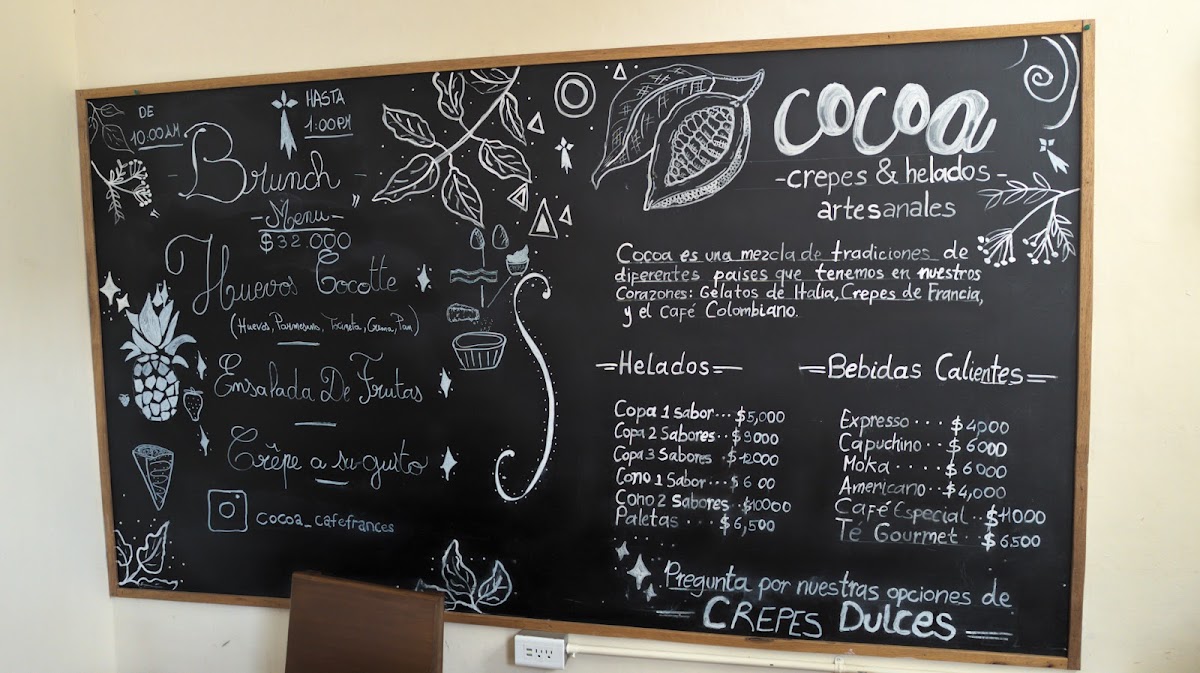 DE
10:00 AM
HASTA
1:00 PM
Brunch
-Menu-
$32.000
Huevos Cocotte
(Huevos, Parmesano, Tocineta, Crema, Pan)
Ensalada De Frutas
Crêpe a su gusto
cocoa_cafefrances
cocoa
-crepes & helados-
artesanales
Cocoa es una mezcla de tradiciones de
diferentes paises que tenemos en nuestros
Corazones: Gelatos de Italia, Crepes de Francia,
y el café Colombiano.
=Helados=
Copa 1 sabor... $5,000
Copa 2 Sabores.. $9000
Copa 3 Sabores .$12000
Cono 1 Sabor...
Cono 2 Sabores .$10000
Paletas ... $6,500
=Bebidas Calientes=
Expresso.... $4000
Capuchino... $6000
Moka ..... $6000
Americano.. $4,000
Café Especial..$11000
Té Gourmet.. $6500
Pregunta por nuestras opciones de
CREPES DULCES